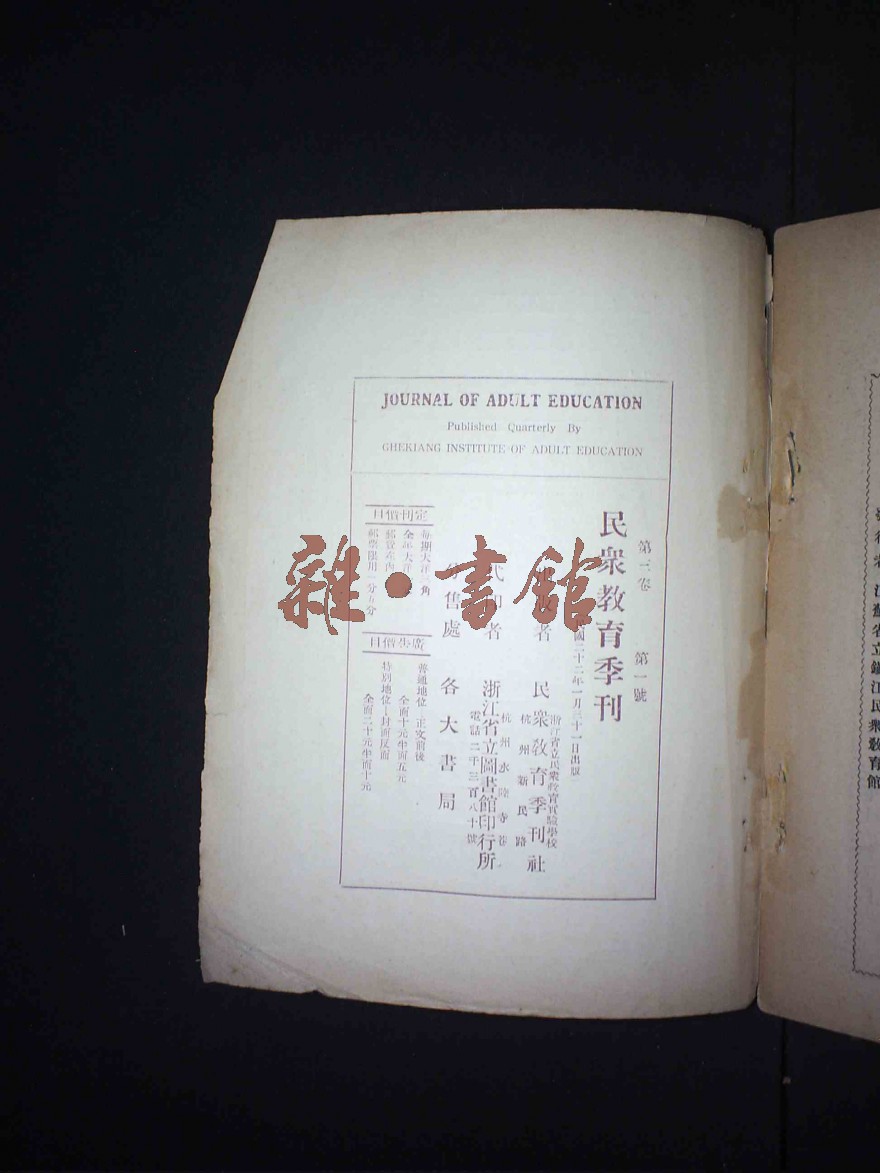 JOURNAL OF ADULT EDUCATION
Published Quarterly By
GHEKIANG INSTITUTE OF ADULT EDUCATION
第三卷 第一號
民衆教育季刊
民國二十二年一月三十一日出版
者 民衆教育季刊社
浙江省立民衆教育實驗學校
杭州新民路
代印者 浙江省立圖書館印行所
杭州水陸寺巷
電話二千三百八十號
分售處 各大書局
定刊價目
每期大洋 角
全年大洋
郵票限用一分五分
廣告價目
普通地位—正文前後
全面十元半面五元
特別地位—封面反面
全面二十元半面十元
雜·書館
江蘇省立鎮江民衆教育館